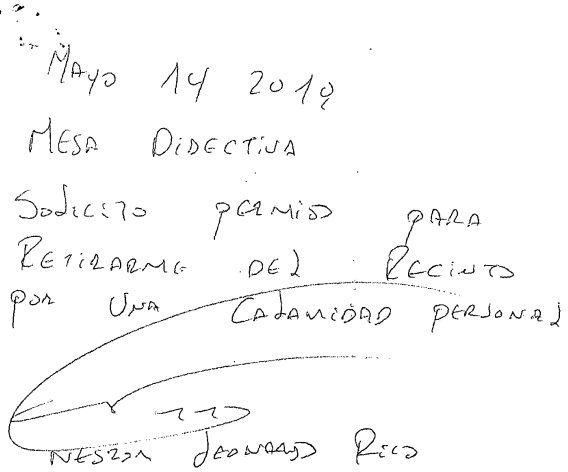 Mayo 14 2019
Mesa Directiva
Solicito permiso para
Retirarme del Recinto
por una Calamidad personal
Nestor Leonardo Rico